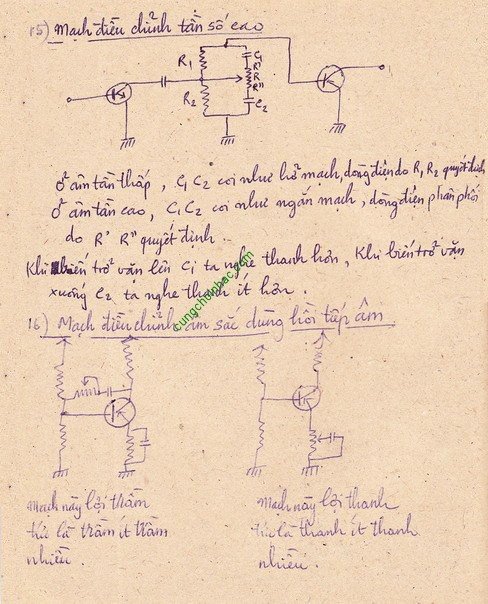 15) Mạch điều chỉnh tần số cao
R1 C1
R'
R
R2 R"
C2
Ở âm tần thấp, C1 C2 coi như hở mạch, dòng điện do R1 R2 quyết định
Ở âm tần cao, C1 C2 coi như ngắn mạch, dòng điện phân phối
do R' R" quyết định.
Khi biến trở vặn lên C1 ta nghe thanh hơn, Khi biến trở vặn
xuống C2 ta nghe thanh ít hơn.
cungchoinhac.com
16) Mạch điều chỉnh âm sắc dùng hồi tiếp âm
Mạch này lợi trầm
tức là trầm ít trầm
nhiều.
Mạch này lợi thanh
tức là thanh ít thanh
nhiều.